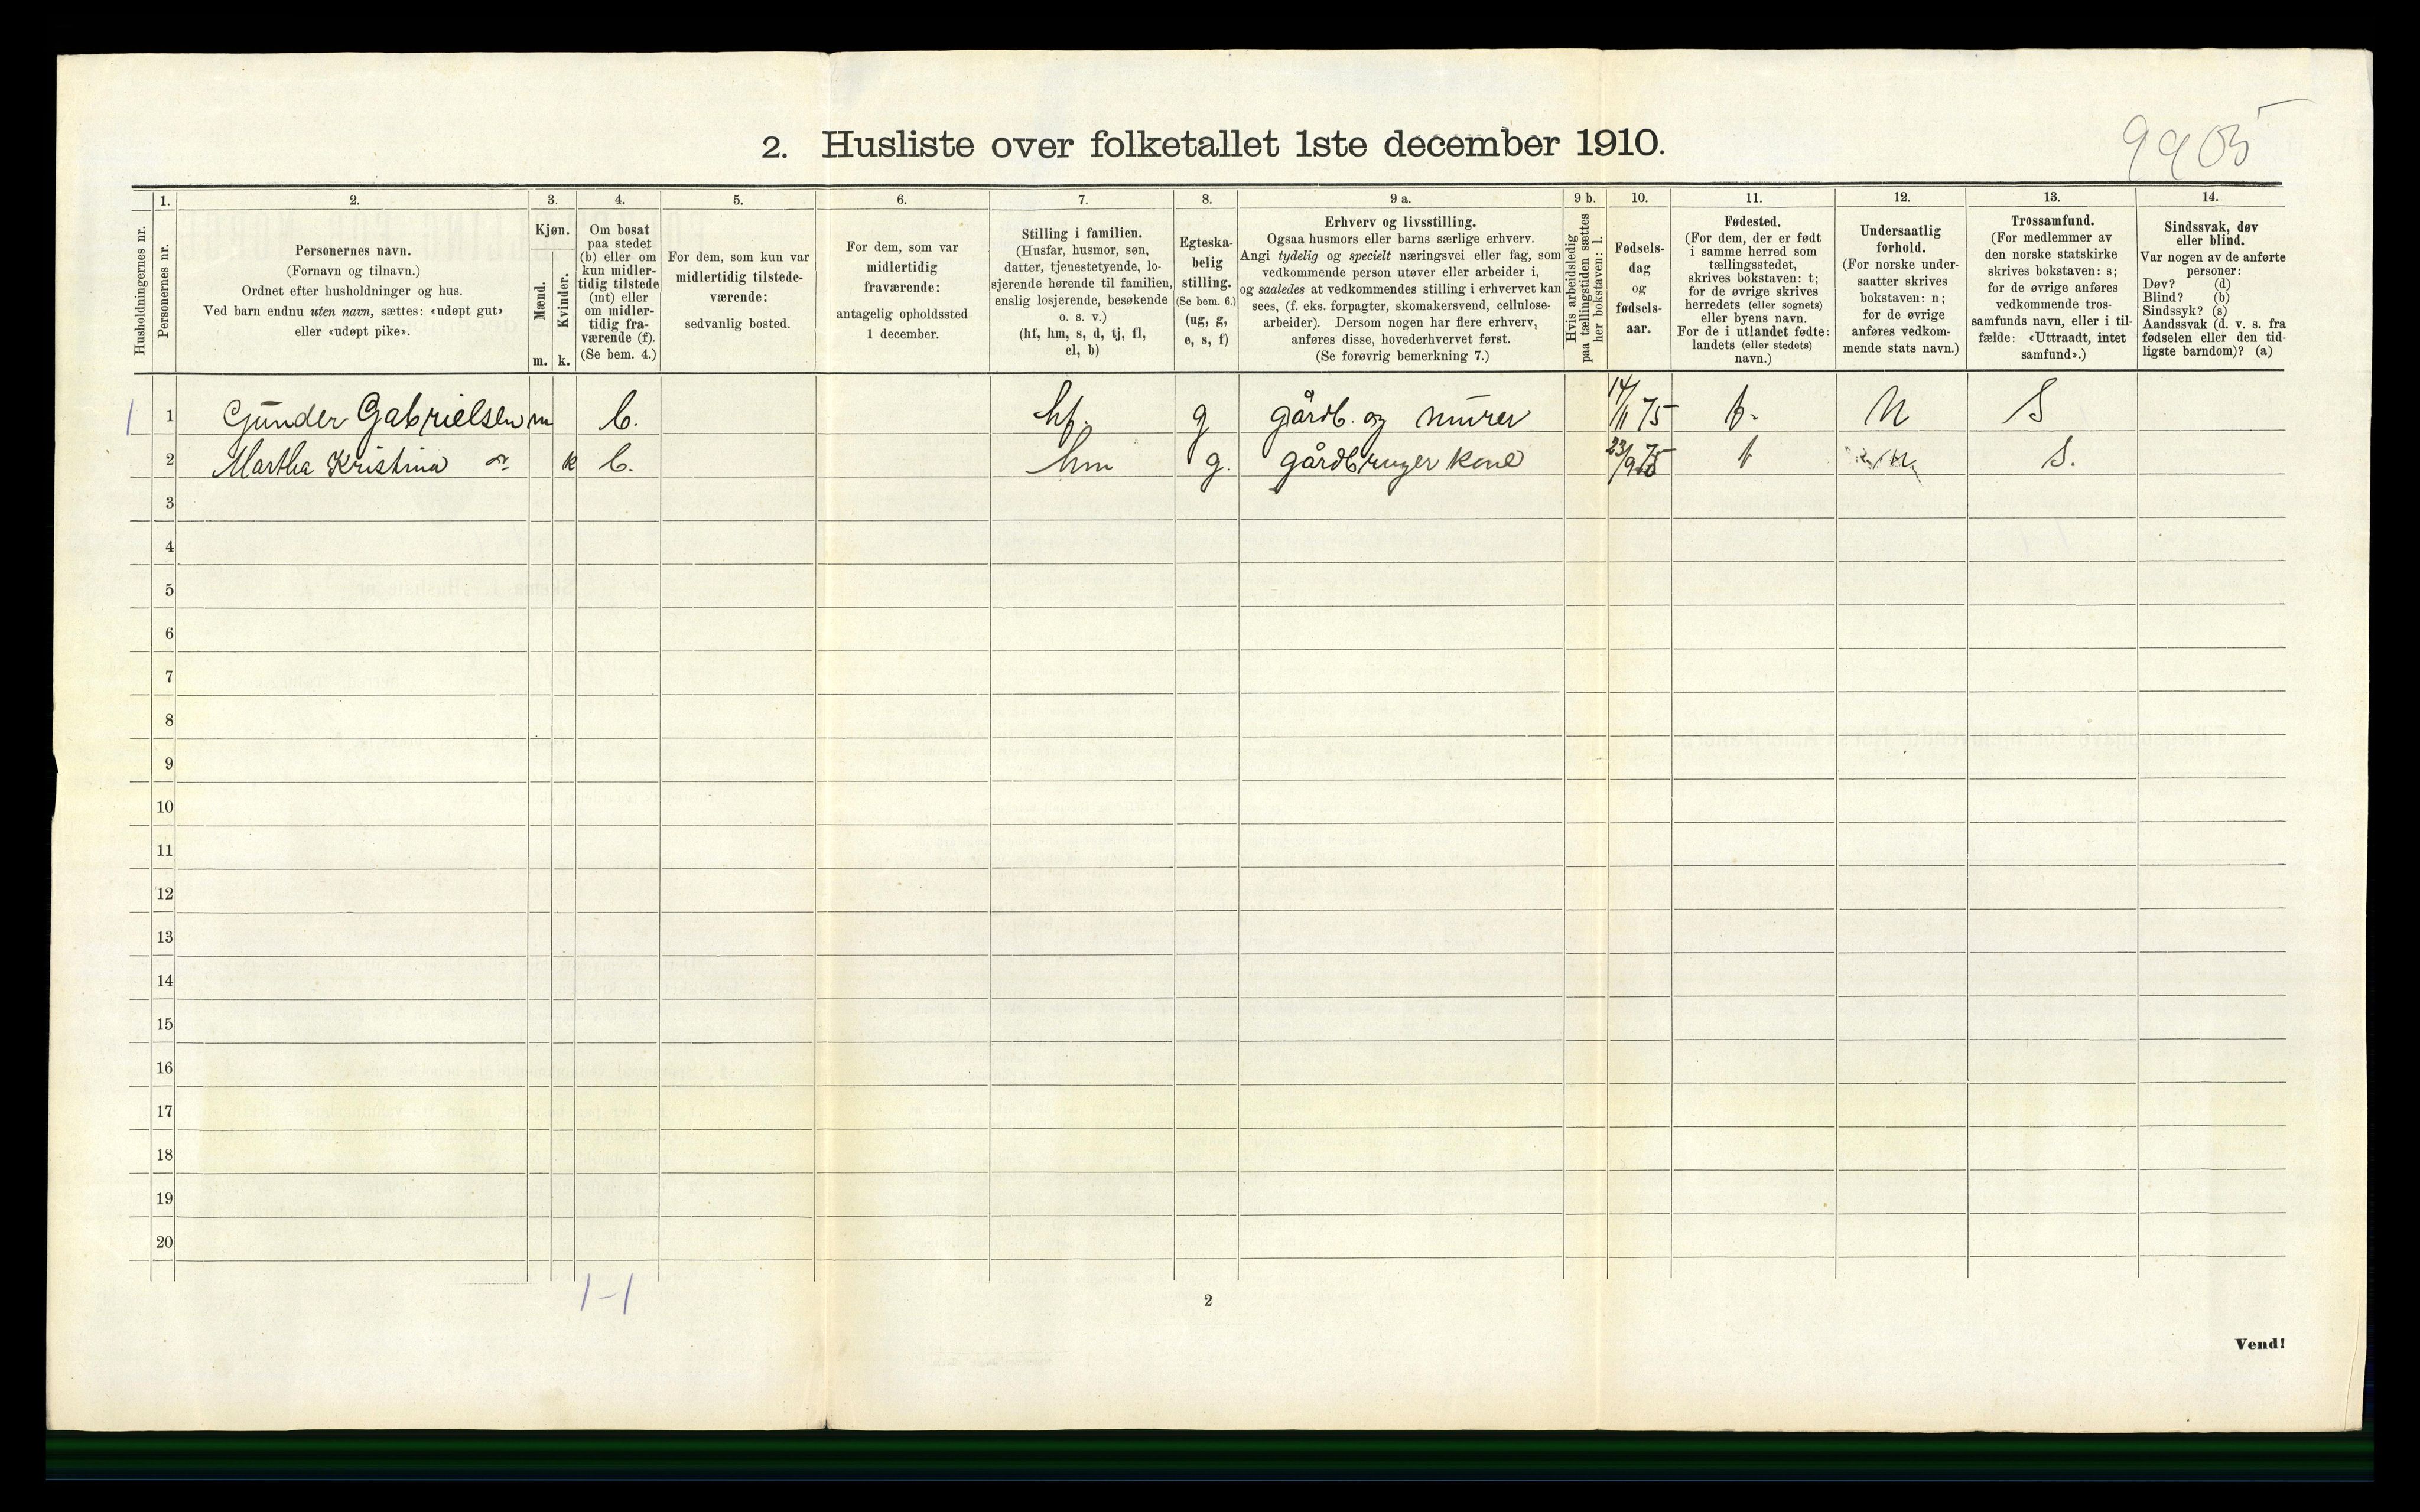 9905
2. Husliste over folketallet 1ste december 1910.
Husholdningernes nr.
1. Personernes nr.
2. Personernes navn.
(Fornavn og tilnavn.)
Ordnet efter husholdninger og hus.
Ved barn endnu uten navn, sættes: «udøpt gut»
eller «udøpt pike».
3. Kjøn.
Mænd. m.
Kvinder. k.
4. Om bosat
paa stedet
(b) eller om
kun midler-
tidig tilstede
(mt) eller
om midler-
tidig fra-
værende (f).
(Se bem. 4.)
5. For dem, som kun var
midlertidig tilstede-
værende:
sedvanlig bosted.
6. For dem, som var
midlertidig
fraværende:
antagelig opholdssted
1 december.
7. Stilling i familien.
(Husfar, husmor, søn,
datter, tjenestetyende, lo-
sjerende hørende til familien,
enslig losjerende, besøkende
o. s. v.)
(hf, hm, s, d, tj, fl,
el, b)
8. Egteska-
belig
stilling.
(Se bem. 6.)
(ug, g,
e, s, f)
9 a. Erhverv og livsstilling.
Ogsaa husmors eller barns særlige erhverv.
Angi tydelig og specielt næringsvei eller fag, som
vedkommende person utøver eller arbeider i,
og saaledes at vedkommendes stilling i erhvervet kan
sees, (f. eks. forpagter, skomakersvend, cellulose-
arbeider). Dersom nogen har flere erhverv,
anføres disse, hovederhvervet først.
(Se forøvrig bemerkning 7.)
9 b. Hvis arbeidsledig
paa tællingstiden sættes
her bokstaven: l.
10. Fødsels-
dag
og
fødsels-
aar.
11. Fødested.
(For dem, der er født
i samme herred som
tællingsstedet,
skrives bokstaven: t;
for de øvrige skrives
herredets (eller sognets)
eller byens navn.
For de i utlandet fødte:
landets (eller stedets)
navn.)
12. Undersaatlig
forhold.
(For norske under-
saatter skrives
bokstaven: n;
for de øvrige
anføres vedkom-
mende stats navn.)
13. Trossamfund.
(For medlemmer av
den norske statskirke
skrives bokstaven: s;
for de øvrige anføres
vedkommende tros-
samfunds navn, eller i til-
fælde: «Uttraadt, intet
samfund».)
14. Sindssvak, døv
eller blind.
Var nogen av de anførte
personer:
Døv? (d)
Blind? (b)
Sindssyk? (s)
Aandssvak (d. v. s. fra
fødselen eller den tid-
ligste barndom)? (a)
1 1 Gunder Gabrielsen m b. hf. g gårdb. og murer 14/11 75 t. N S
2 Martha Kristina do k b. hm g. gårdbruger kone 23/9 75 t n S.
3
4
5
6
7
8
9
10
11
12
13
14
15
16
17
18
19
20
1-1
2
Vend!